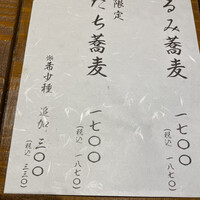 るみ蕎麦
一七〇〇
(税込 一八七〇)
限定
たち蕎麦
一七〇〇
(税込 一八七〇)
希少種 追加 三〇〇
(税込 三三〇)